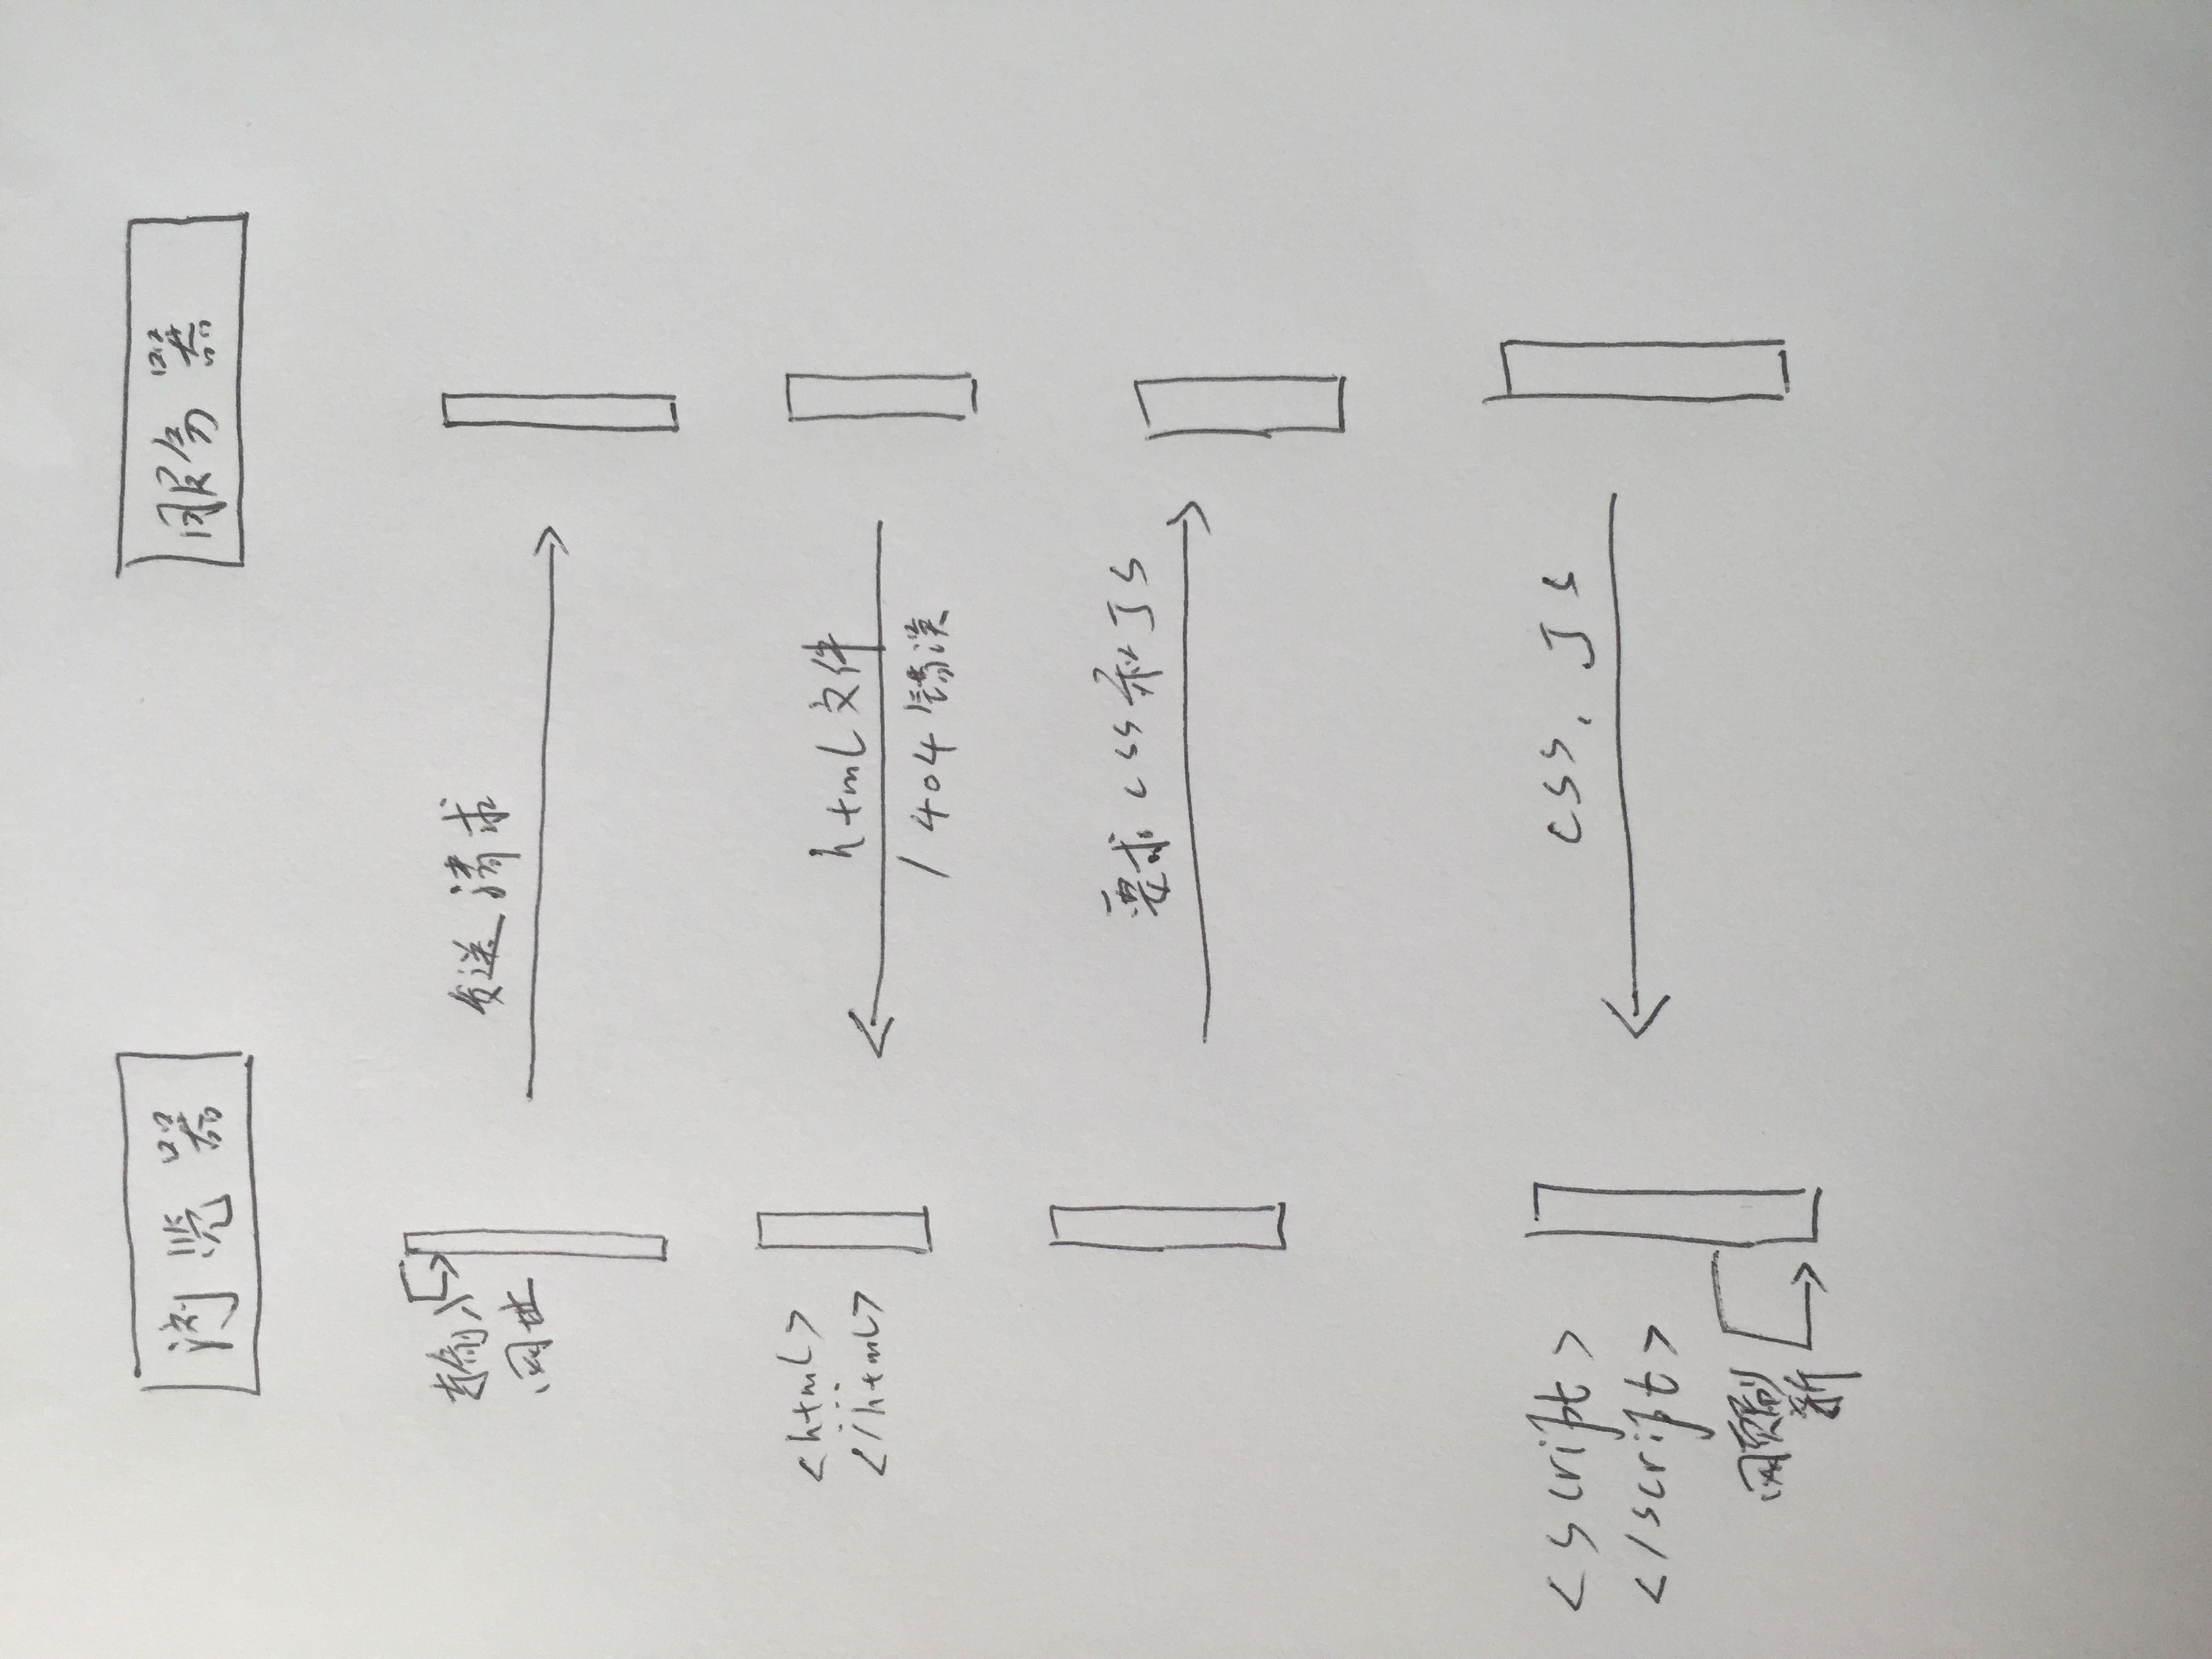 浏览器
服务器
输入
网址
发送请求
<html>
...
</html>
html文件
/404错误
要求css和JS
<script>
</script>
css、JS
网页刷
新